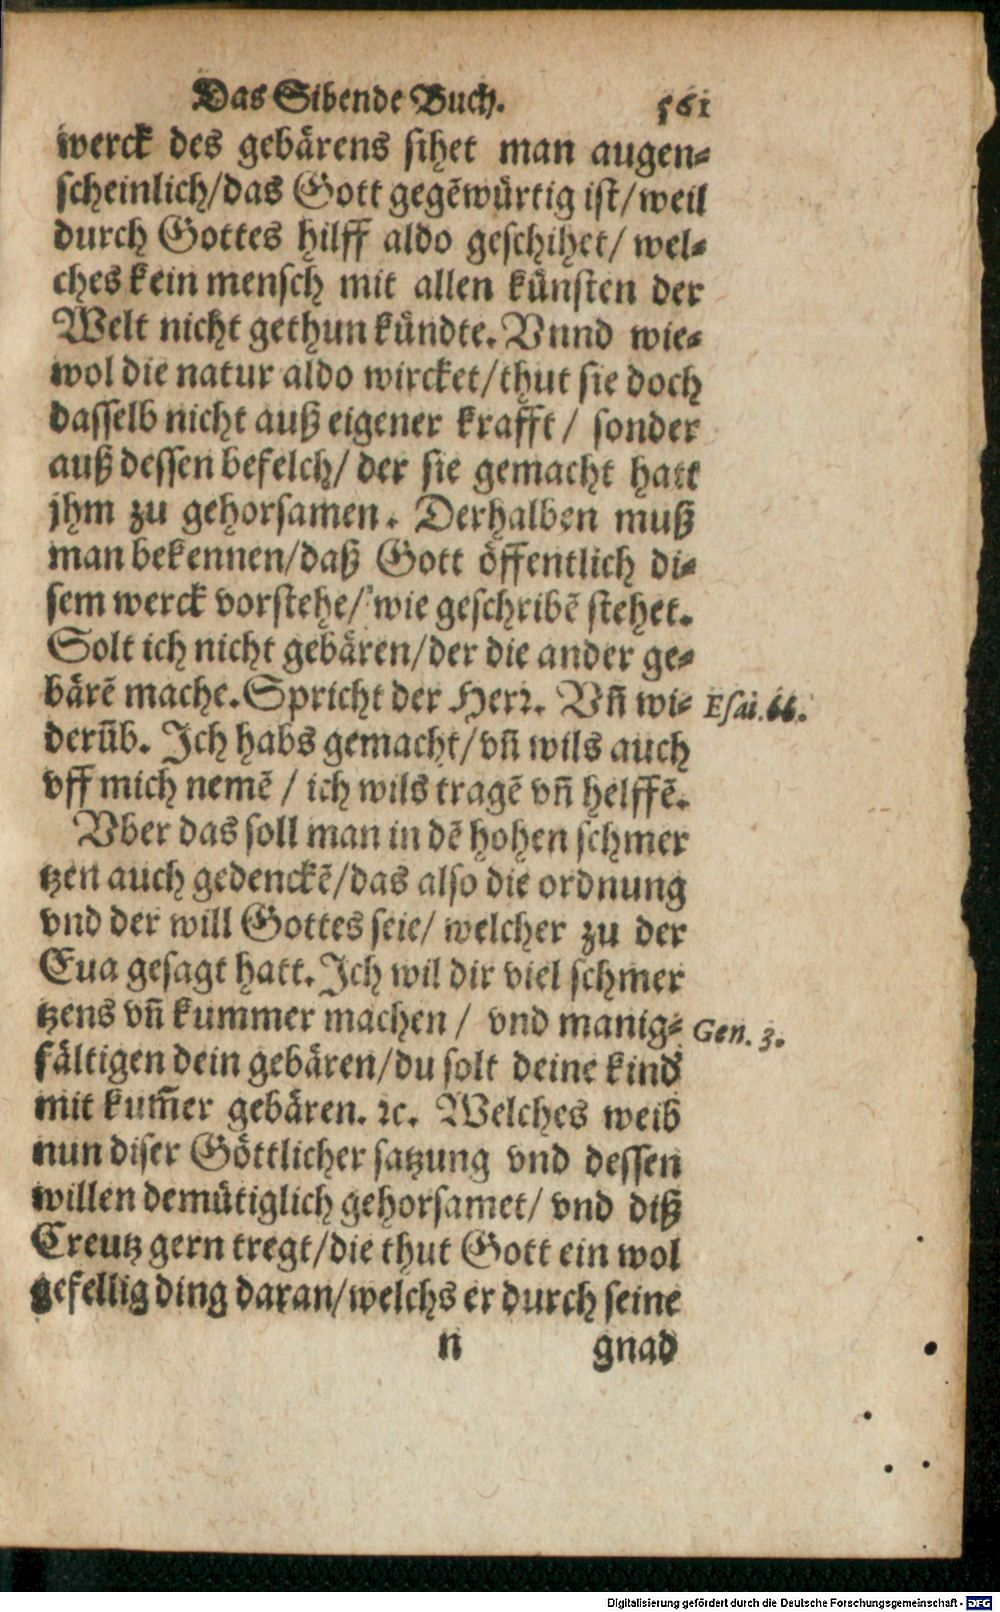 Das Sibende Buch. 561
werck des gebärens sihet man augen-
scheinlich/das Gott gegẽwürtig ist/weil
durch Gottes hilff aldo geschihet/ wel-
ches kein mensch mit allen künsten der
Welt nicht gethun kündte. Vnnd wie-
wol die natur aldo wircket/thut sie doch
dasselb nicht auß eigener krafft/ sonder
auß dessen befelch/ der sie gemacht hatt
jhm zu gehorsamen. Derhalben muß
man bekennen/daß Gott öffentlich di-
sem werck vorstehe/ wie geschribẽ stehet.
Solt ich nicht gebären/der die ander ge-
bärẽ mache. Spricht der Herr. Vñ wi-
Esai. 66.
derũb. Ich habs gemacht/vñ wils auch
vff mich nemẽ / ich wils tragẽ vñ helffẽ.
Vber das soll man in dẽ hohen schmer
tzen auch gedenckẽ/das also die ordnung
vnd der will Gottes seie/ welcher zu der
Eua gesagt hatt. Ich wil dir viel schmer
tzens vñ kummer machen / vnd manig-
Gen. 3.
fältigen dein gebären/du solt deine kind
mit kum̃er gebären. ꝛc. Welches weib
nun diser Göttlicher satzung vnd dessen
willen demütiglich gehorsamet/ vnd diß
Creutz gern tregt/die thut Gott ein wol
gefellig ding daran/welchs er durch seine
n gnad
Digitalisierung gefördert durch die Deutsche Forschungsgemeinschaft - DFG